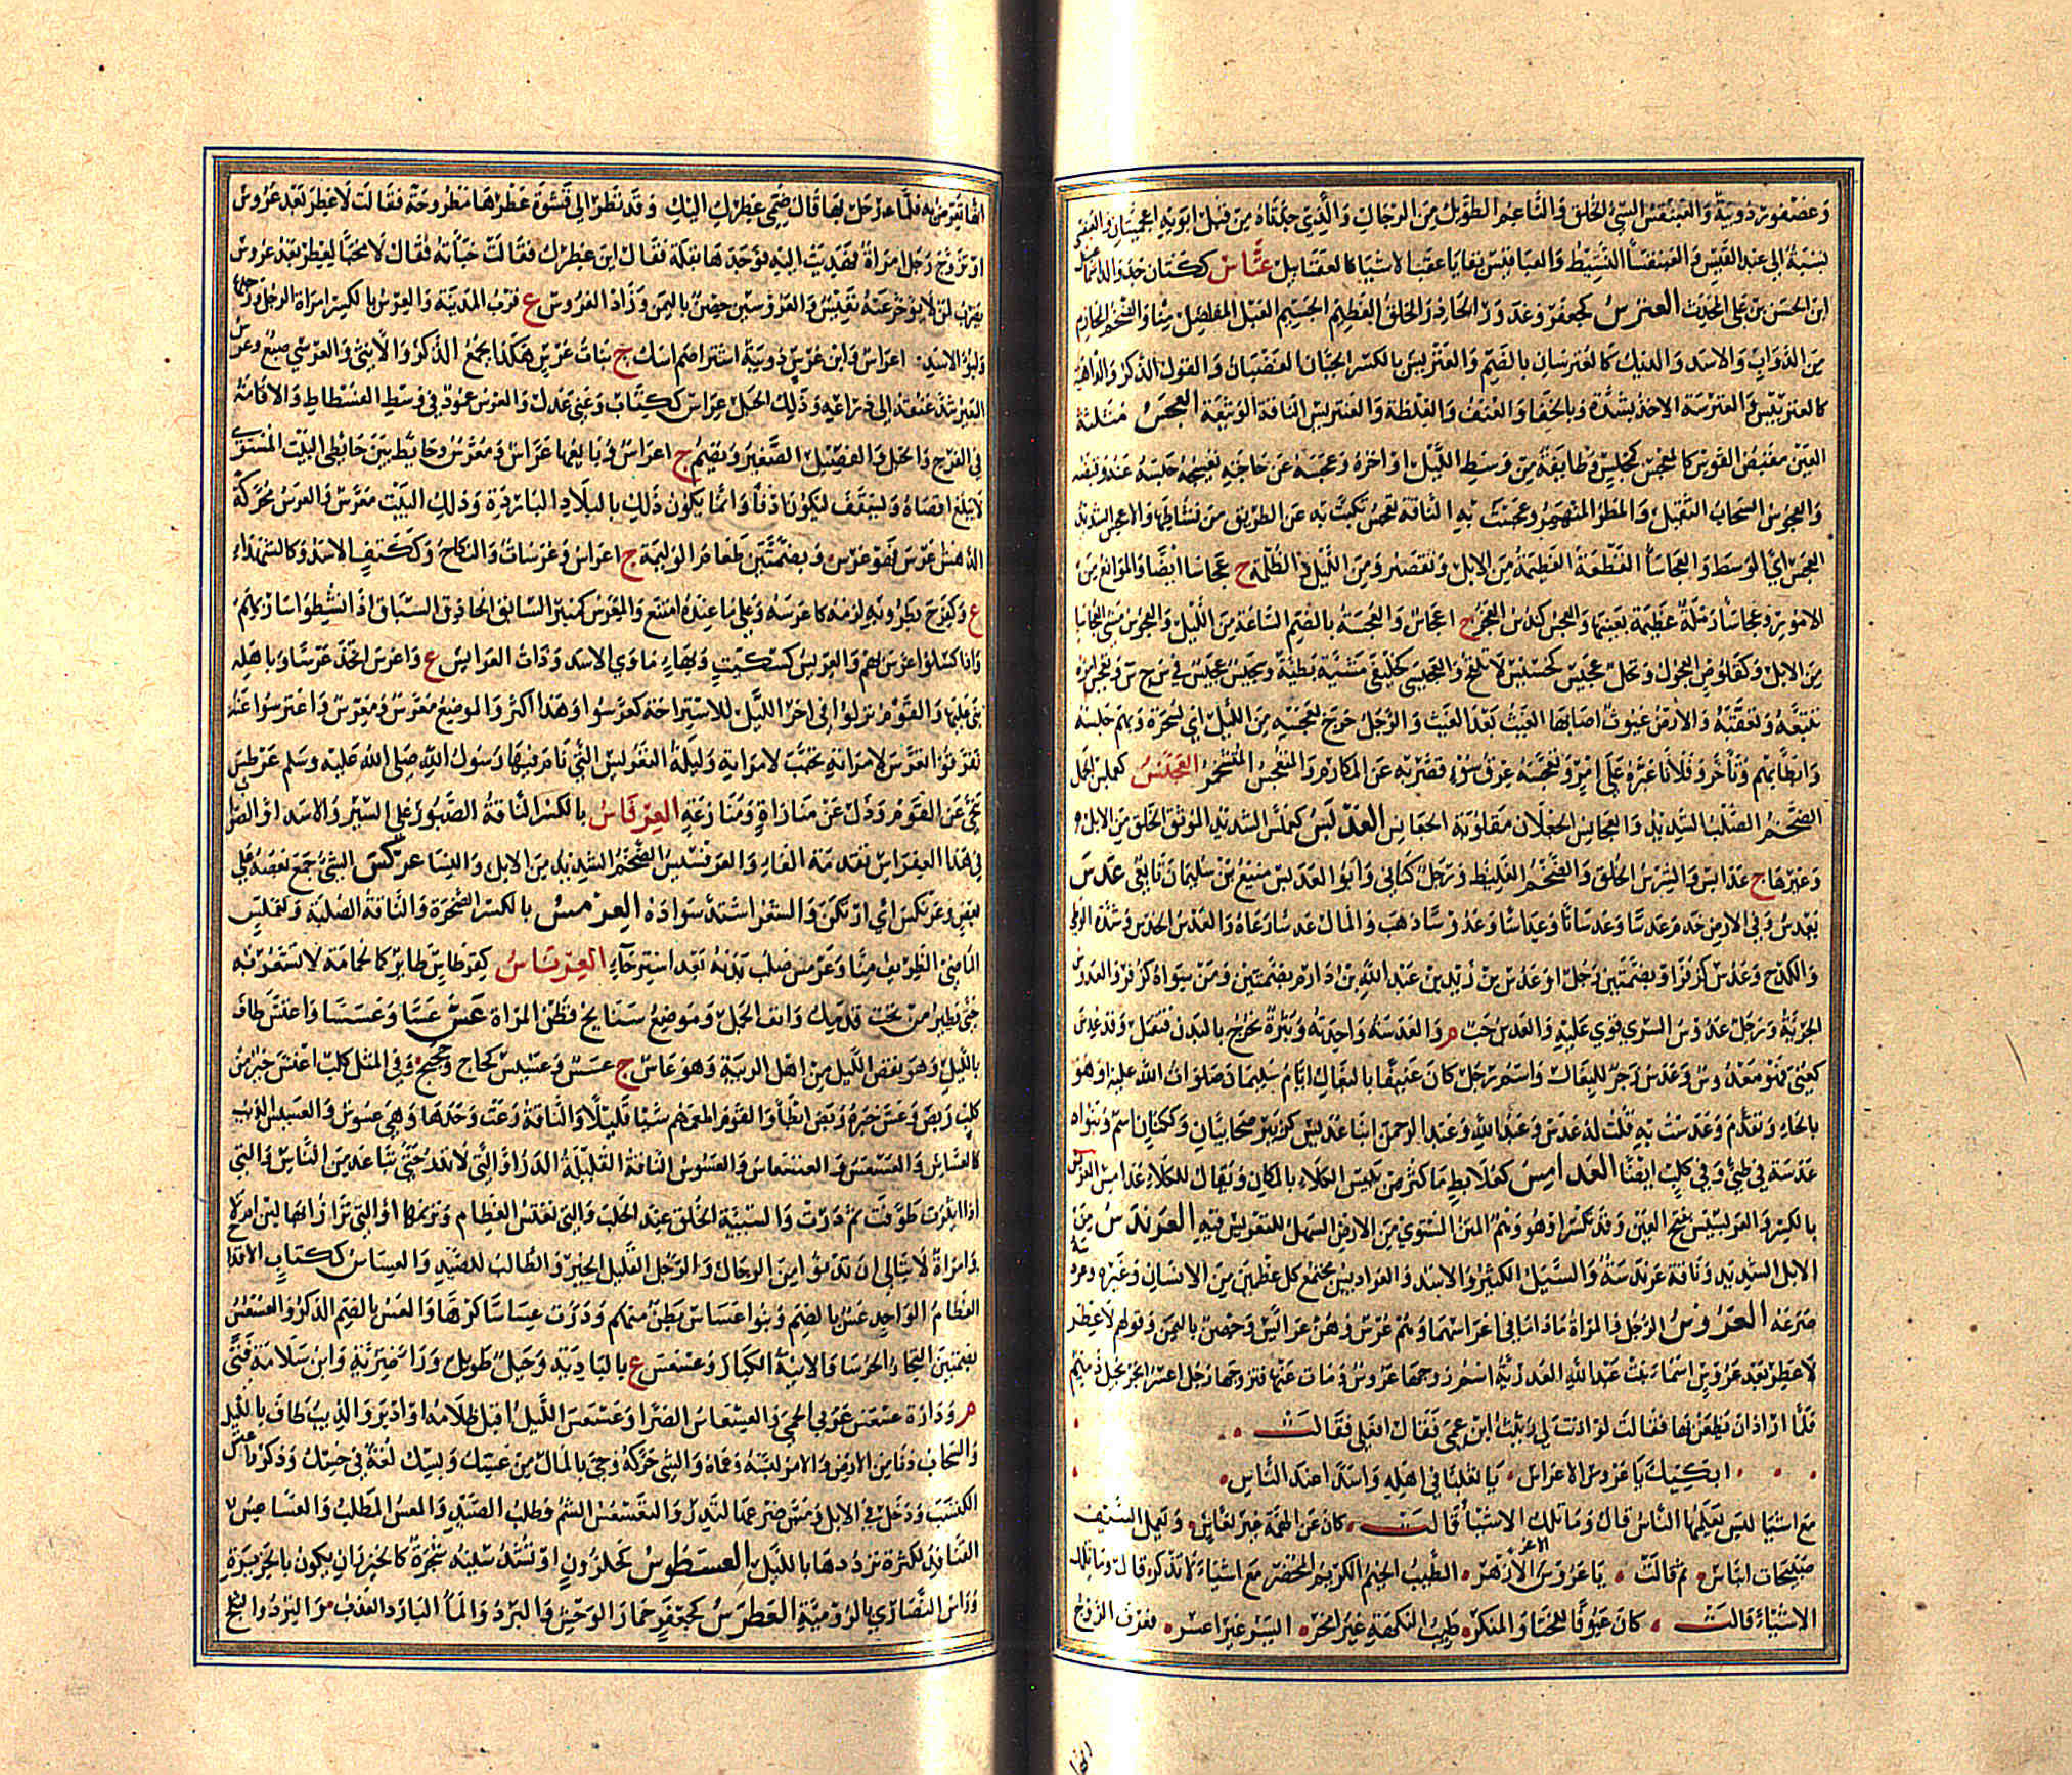 وعضفوس دويبة والعبنقس السيئ الخلق والناعم الطويل من الرجال والذي جدتاه من قبل ابويه اعجميتان والعبقسي
نسبة الى عبد القيس عتاس ككتان جد والد
ابن الحسن بن علي المحدث العترس كجعفر وعذور الحادر الخلق العظيم الجسيم العبل المفاصل منا والضخم المحازم
من الدواب والاسد والديك كالعترسان بالضم والعتريس بالكسر الجبار الغضبان والغول الذكر والداهية
كالعنتريس والعترسة الاخذ بشدة وبالجفا والعنف والغلظة والعنتريس الناقة الوثيقة العجس مثلثة
العين مقبض القوس كالمعجس كمجلس وطايفة من وسط الليل او اخره وعجسه عن حاجته يعجسه حبسه عنه وقبضه
والعجوس السحاب الثقيل والمطر المنهمر وعجست به الناقة تعجس نكبت به عن الطريق من نشاطها والاعجس الشديد
العجس اي الوسط والعجاسا القطعة العظيمة من الابل وتقصر ومن الليل الظلمة ج عجاسا ايضا والموانع من
الامور وعجاسا رملة عظيمة بعينها والعجس كندس العجز ج اعجاس والعجسة بالضم الساعة من الليل والعجوس مشي العجاسا
من الابل وكقبول العجول وفحل عجيس كحسيس لا تلقح والعجيسى كخليفى مشية بطيئة وعجيس عجيس في س ج س وتعجس امره
تتبعه وتعقبه والارض غيوث اصابها الغيث بعد الغيث والرجل خرج بعجسة من الليل اي بسحرة وبهم حبسه
وابطأ بهم وتأخر وفلانا عيره على امر وتعجسه عرق سوء قصر به عن المكارم والمتعجس المتشحر العجنس كعملس الجمل
الضخم الصلب الشديد والعجانس الجعلان مقلوبة الجعانس العدبس كعملس الشديد الموثق الخلق من الابل و
وغيرها ج عدابس والشرس الخلق والضخم الغليظ ورجل كناني وابو العدبس منيع بن سليمان تابعي عدس
يعدس وفي الارض خدم عدسا وعدسانا وعداسا وعدوسا ذهب والمال عدسا رعاه والعدس الحدس وشدة الوطء
والكدح وعدس كزفر او بضمتين رجل او عدس بن زيد بن عبد الله بن دارم بضمتين ومن سواه كزفر والعدوس
الجريئة ورجل عدوس السرى قوي عليه والعدس حب م والعدسة واحدته وبثرة تخرج بالبدن فتقتل وقد عدس
كعني فهو معدوس وعدس زجر للبغال واسم رجل كان عنيفا بالبغال ايام سليمان صلوات الله عليه او هو
بالحاء وتقدم وعدست به قلت له عدس وعبد الله وعبد الرحمن ابنا عديس كزبير صحابيان وككتان اسم وبنو
عدسة في طيئ وفي كلب ايضا العدامس كعلابط ما كثر من يبيس الكلاء بالمكان ويقال للكلاء عدامس
بالكسر بفتح العين وقد تكسر او هو وهم المتن المستوي من الارض السهل للتعريس فيه العرندس من
الابل الشديد وناقة عرندسة والسيل الكثير والاسد والعراديس مجتمع كل عظمين من الانسان وغيره
صرعه العروس الرجل والمراة ماداما في اعراسهما وهم عرس وهن عرائس وحصن باليمن وقولهم لا عطر
لا عطر بعد عروس اسماء بنت عبد الله العذرية اسم زوجها عروس ومات عنها فتزوجها رجل اعسر ابخر بخيل دميم
فلما اراد ان يظعن بها فقالت لو اذنت لي رثيت ابن عمي فقال افعلي فقالت
ابكيك يا عروس الاعراس يا ثعلبا في اهله واسدا عند الناس
مع اشيا ليس يعلمها الناس قال وما تلك الاشياء قالت كان عن الهمة غير نعاس ويعمل السيف
صبيحات الباس ثم قالت يا عروس الاغر الازهر الطيب الخيم الكريم المحضر مع اشياء لا تذكر قال وما تلك
الاشياء قالت كان عيوفا للخنا والمنكر طيب النكهة غير ابخر ايسر غير اعسر فعرف الزوج
انها
انها تعرض به فلما رحل بها قال ضمي عطرك اليك وقد نظر الى قشوة عطرها مطروحة فقالت لا عطر بعد عروس
او تزوج رجل امراة فهديت اليه فوجدها تفلة فقال اين عطرك فقالت خبأته فقال لا مخبا لعطر بعد عروس
يضرب لمن لا يؤخر عنه نفيس والعروسين حصن باليمن ووادا العروس ع قرب المدينة والعرس بالكسر امراة الرجل ورجلها
ولبؤة الاسد اعراس وابن عرس دويبة اشتر اصلم اسك ج بنات عرس هكذا يجمع الذكر والانثى والعرسي صبغ وعرس
البعير شد عنقه الى ذراعه وذلك الحبل عراس ككتاب وعني عدل والعرس عمود في وسط الفسطاط والاقامة
في الفرح والحبل والفصيل الصغير ويضم ج اعراس وبايعها عراس ومعرس وحايط بين حايطي البيت الشتوي
لا يبلغ اقصاه ويسقف ليكون ادفأ وانما يكون ذلك بالبلاد الباردة وذلك البيت معرس والعرس محركة
الدهش عرس فهو عرس وبضمتين طعام الوليمة ج اعراس وعرسات والنكاح وككتف الاسد وكالشهداء
ع وكفرح بطر وبه لزمه كاعرسه وعلي ما عنده امتنع والمعرس كمنبر السائق الحاذق السياق اذا نشطوا سار بهم
واذا كسلوا اعرس بهم والعريس كسكيت وبهاء ماوى الاسد وذات العرايس ع واعرس اتخذ عرسا وباهله
بنى عليها والقوم نزلوا في اخر الليل للاستراحة كعرسوا وهذا اكثر والموضع معرس ومعرس واعترسوا عنه
تفرقوا وتعرس لامراته تحبب لامراته وليلة التعريس التي نام فيها رسول الله صلى الله عليه وسلم عرطس
تنحى عن القوم وذل عن مناواة ومنازعة العرفاس بالكسر الناقة الصبور على السير والاسد او الصواب
في هذا العفراس تقدمة الفاء والعرنسيس الضخم الشديد من الابل والنسا عركس الشيء جمع بعضه على
بعض وعرنكس اي ارتكم والشعر اشتد سواده العرمس بالكسر الصخرة والناقة الصلبة وكعملس
الماضي الظريف منا وعرمس صلب بدنه بعد استرخاء العرناس كقرطاس طاير كالحمامة لا تشعر به
حتى تطير من تحت قدميك وانف الجبل وموضع سبايخ قطن المراة عس عسا وعسسا واعتس طاف
بالليل وهو نفض الليل من اهل الريبة وهو عاس ج عسس وعسيس كحاج وحجيج وفي المثل كلب اعتس خير من
كلب ربض وعس خبره ابطأ والقوم اطعمهم شيئا قليلا والناقة رعت وحدها وهي عسوس والعسيس الذيب
كالعساس والعسعس والعسعاس والعسوس الناقة القليلة الدر او التي لا تدر حتى تباعد من الناس والتي
اذا اثيرت طوفت ثم درت والسيئة الخلق عند الحلب والتي تعتس العظام وترتمها او التي تراز ابها لبن ام لا
وامراة لا تبالي ان تدنو من الرجال والرجل القليل الخير والطالب للصيد والعساس ككتاب الاقداح
العظام الواحد عس بالضم وبنو اعساس بطن منهم ودرت عساسا كرها والعس بالضم الذكر والعسس
بضمتين التجار والحرصا والانية الكبار وعسعس ع بالبادية وجبل طويل وراء ضرية وابن سلامة فتى
م ودارة عسعس غربي الحمى والعسعاس السراب وعسعس الليل اقبل ظلامه او ادبر والذيب طاف بالليل
والسحاب دنا من الارض والامر لبسه وعماه والشي حركه وجئ بالمال من عسك وبسك لغة في حسك وذكر واعتس
اكتسب ودخل في الابل ومسح ضرعها لتدر والتعسعس الشم وطلب الصيد والمعس المطلب والعساعس
القنافذ لكثرة ترددها بالليل العسطوس كحلزون او تشدد سينه شجرة كالخيزران يكون بالجزيرة
وراس النصارى بالرومية العطرس كجعفر حمار الوحش والبرد والماء البارد العذب والبرد والثلج